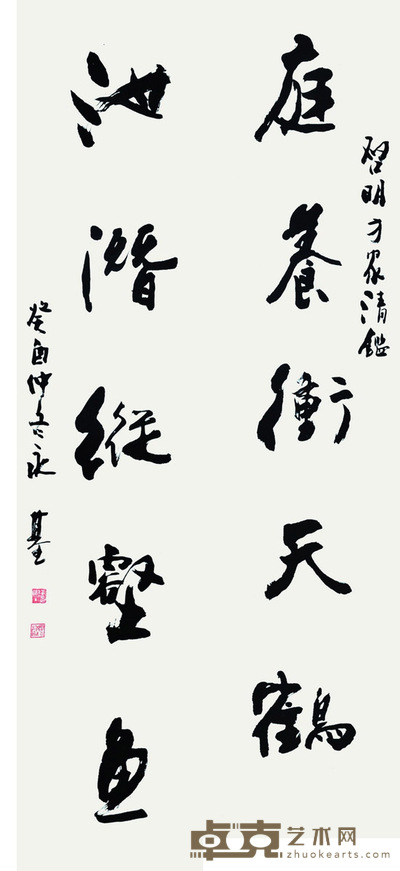 启明方家清鑑
庭養衝天鶴
池潛縱壑魚
癸酉仲冬永基
卓克艺术网
zhuokearts.com